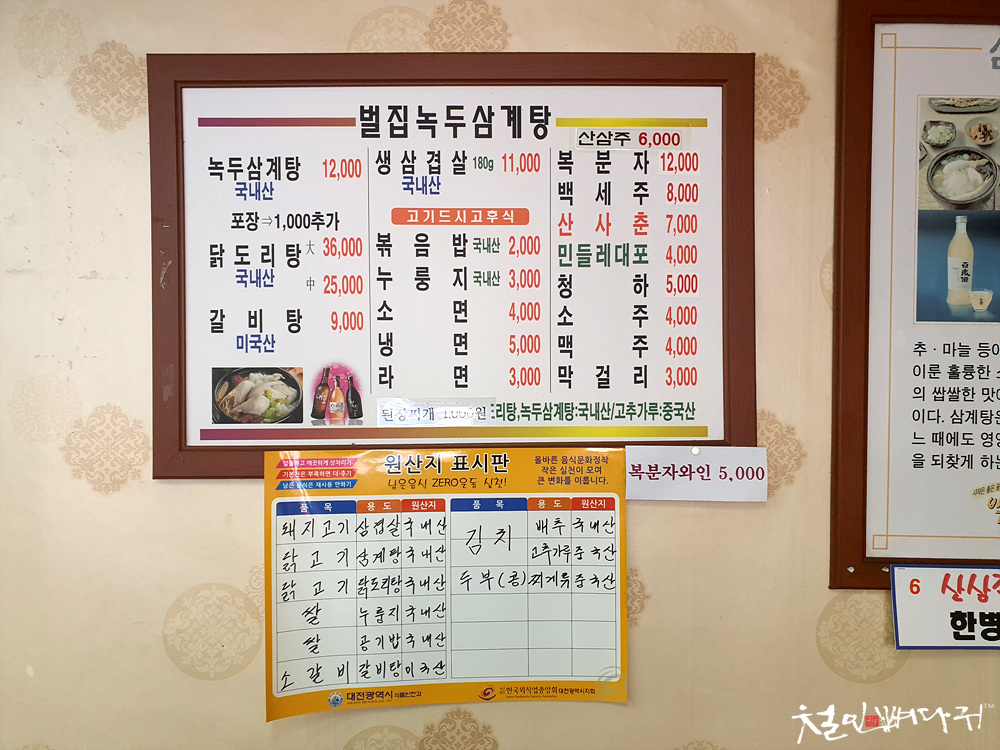 벌집녹두삼계탕
녹두삼계탕 12,000
국내산
포장⇒1,000추가
닭도리탕 大 36,000
국내산
中 25,000
갈비탕 9,000
미국산
생삼겹살 180g 11,000
국내산
고기드시고후식
볶음밥 국내산 2,000
누룽지 국내산 3,000
소면 4,000
냉면 5,000
라면 3,000
산삼주 6,000
복분자 12,000
백세주 8,000
산사춘 7,000
민들레대포 4,000
청하 5,000
소주 4,000
맥주 4,000
막걸리 3,000
된장찌개 1,000원
리탕,녹두삼계탕:국내산/고추가루:중국산
복분자와인 5,000
알맞고 깨끗하게 상차리기
기본찬은 부족하면 더 주기
남은 음식은 재사용 안하기
원산지 표시판
남은음식 ZERO운동 실천!
올바른 음식문화정착
작은 실천이 모여
큰 변화를 이룹니다.
품목 용도 원산지 품목 용도 원산지
돼지고기 삼겹살 국내산
닭고기 삼계탕 국내산
닭고기 닭도리탕 국내산
쌀 누룽지 국내산
쌀 공기밥 국내산
소갈비 갈비탕 미국산
김치 배추 국내산
고추가루 중국산
두부(콩) 찌개류 중국산
대전광역시 식품안전과
한국외식업중앙회 대전광역시지회
추·마늘 등이
이룬 훌륭한
의 쌉쌀한 맛
이다. 삼계탕은
느 때에도 영양
을 되찾게 하는
6 산삼주
한병
철민뼈다귀™